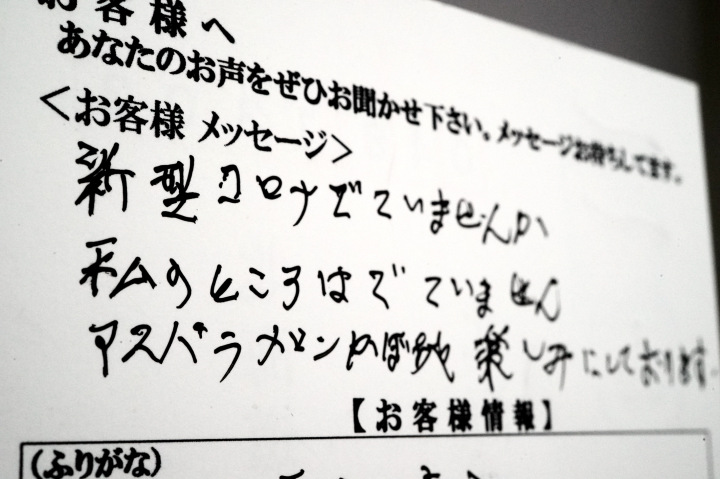 お客様へ
あなたのお声をぜひお聞かせ下さい。メッセージお待ちしてます。
＜お客様 メッセージ＞
新型コロナでていませんか
私のところはでていません
アスパラメロン 楽しみにしております。
【お客様情報】
(ふりがな)